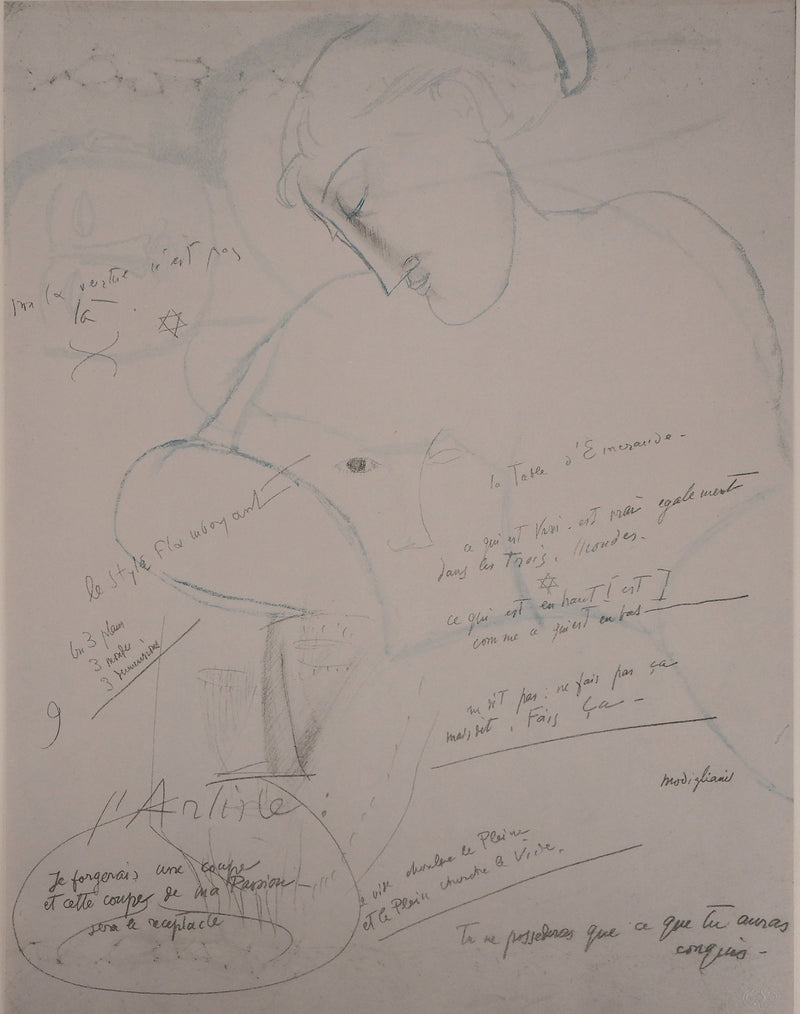 la vertue n'est pas
là
la Table d'Emeraude -
le style Flamboyant
ce qui est Vrai est vrai egalement
dans les trois Mondes.
ce qui est en haut [est]
comme ce qui est en bas
3 plans
3 mondes
3 dimensions
9
pas : ne fais pas ça
mais dit . Fais ça -
modigliani
l'Artiste :
Je forgerais une coupe
et cette coupe de ma Passion -
sera le receptacle
vide cherche le Plein
et le Plein cherche le Vide.
Tu ne possederas que ce que tu auras
conquis -